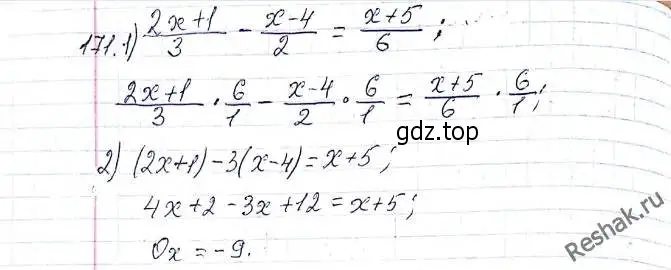 171.1) (2x+1)/3 - (x-4)/2 = (x+5)/6 ;
(2x+1)/3 · 6/1 - (x-4)/2 · 6/1 = (x+5)/6 · 6/1 ;
gdz.top
2) (2x+1) - 3(x-4) = x+5 ;
4x+2 - 3x+12 = x+5 ;
0x = -9.
Reshak.ru